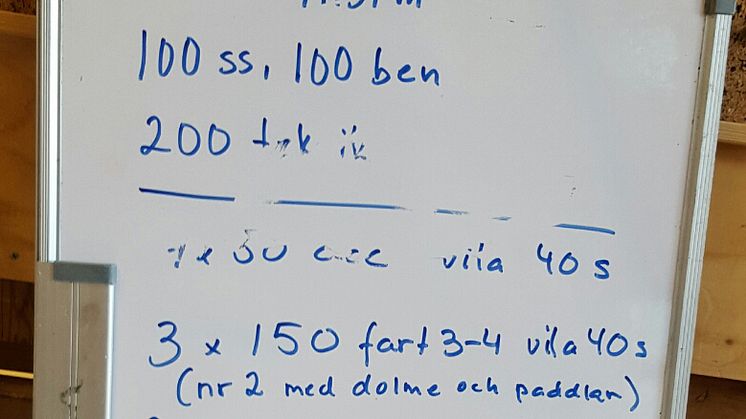 100 ss, 100 ben
200 tek
50 vila 40 s
3 x 150 fart 3-4 vila 40 s
(nr 2 med dolme och paddlar)